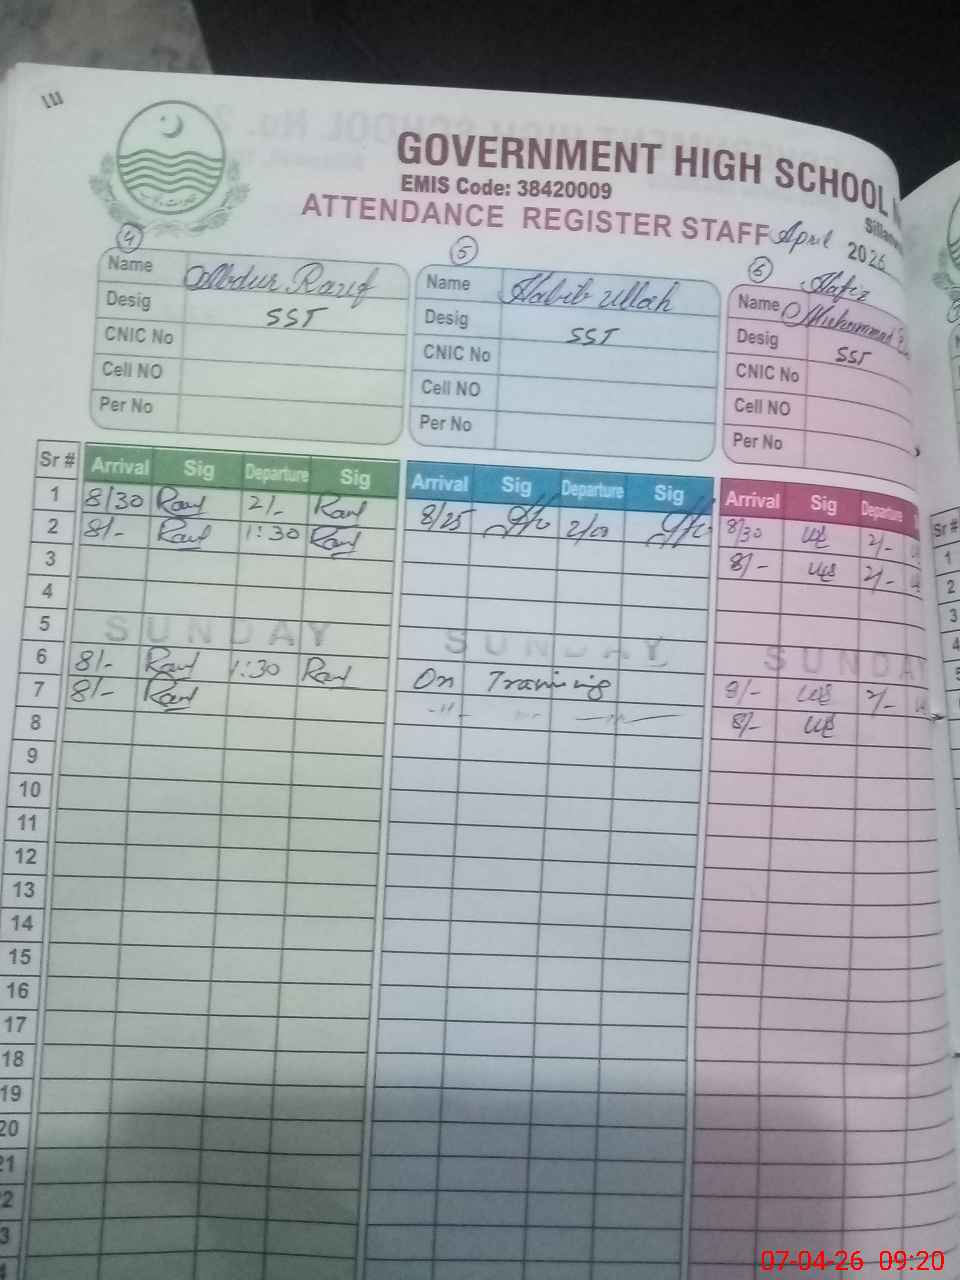 GOVERNMENT HIGH SCHOOL
EMIS Code: 38420009
ATTENDANCE REGISTER STAFF April 2026
4
Name Abdur Rauf
Desig SST
CNIC No
Cell NO
Per No
5
Name Habib ullah
Desig SST
CNIC No
Cell NO
Per No
6
Hafiz
Name Muhammad
Desig SST
CNIC No
Cell NO
Per No
Sr # Arrival Sig Departure Sig Arrival Sig Departure Sig Arrival Sig Departure
1 8/30 Rauf 2/- Rauf 8/25 2/00 8/30 2/-
2 8/- Rauf 1:30 Rauf 8/- 2/-
3
4
5 SUNDAY SUNDAY SUNDAY
6 8/- Rauf 1:30 Rauf On Training 8/- 2/-
7 8/- Rauf -11- -11- 8/-
8
9
10
11
12
13
14
15
16
17
18
19
20
21
Sr #
1
2
3
07-04-26 09:20